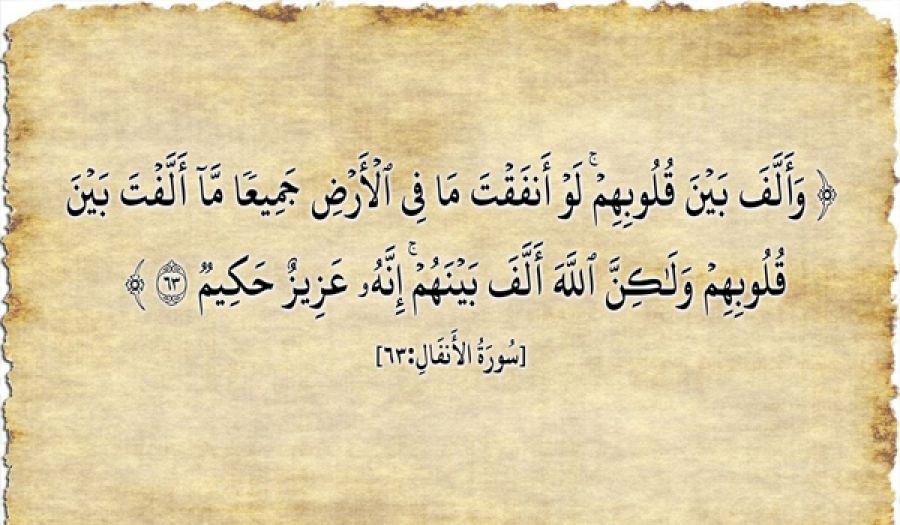 ﴿ وَأَلَّفَ بَيۡنَ قُلُوبِهِمۡۚ لَوۡ أَنفَقۡتَ مَا فِي ٱلۡأَرۡضِ جَمِيعٗا مَّآ أَلَّفۡتَ بَيۡنَ
قُلُوبِهِمۡ وَلَٰكِنَّ ٱللَّهَ أَلَّفَ بَيۡنَهُمۡۚ إِنَّهُۥ عَزِيزٌ حَكِيمٞ ٦٣ ﴾
[سُورَةُ الأَنفَالِ:٦٣]